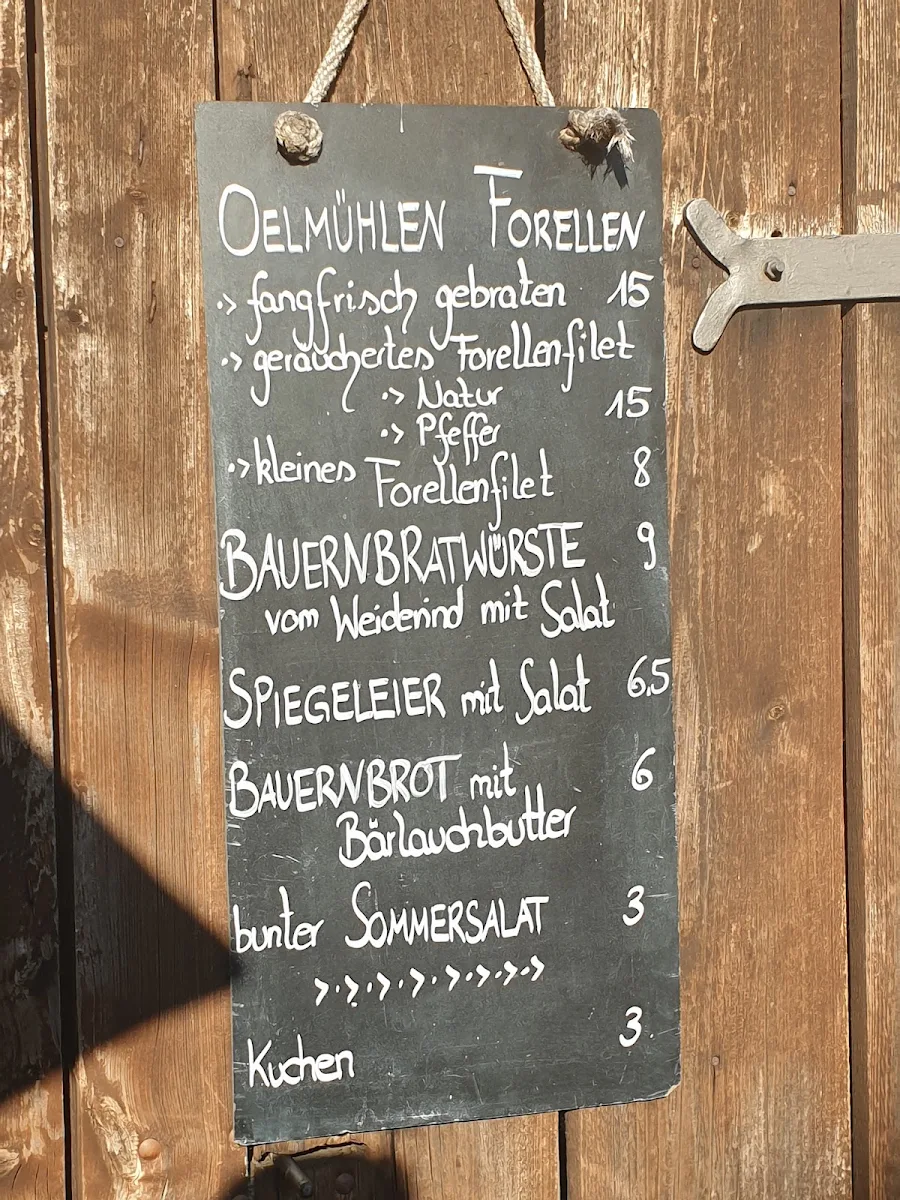 OELMÜHLEN FORELLEN
·> fangfrisch gebraten 15
·> geräuchertes Forellenfilet
·> Natur 15
·> Pfeffer
·> kleines Forellenfilet 8
BAUERNBRATWÜRSTE 9
vom Weiderind mit Salat
SPIEGELEIER mit Salat 6.5
BAUERNBROT mit 6
Bärlauchbutter
bunter SOMMERSALAT 3
>·>·>·>·>·>·>·>·>
Kuchen 3.